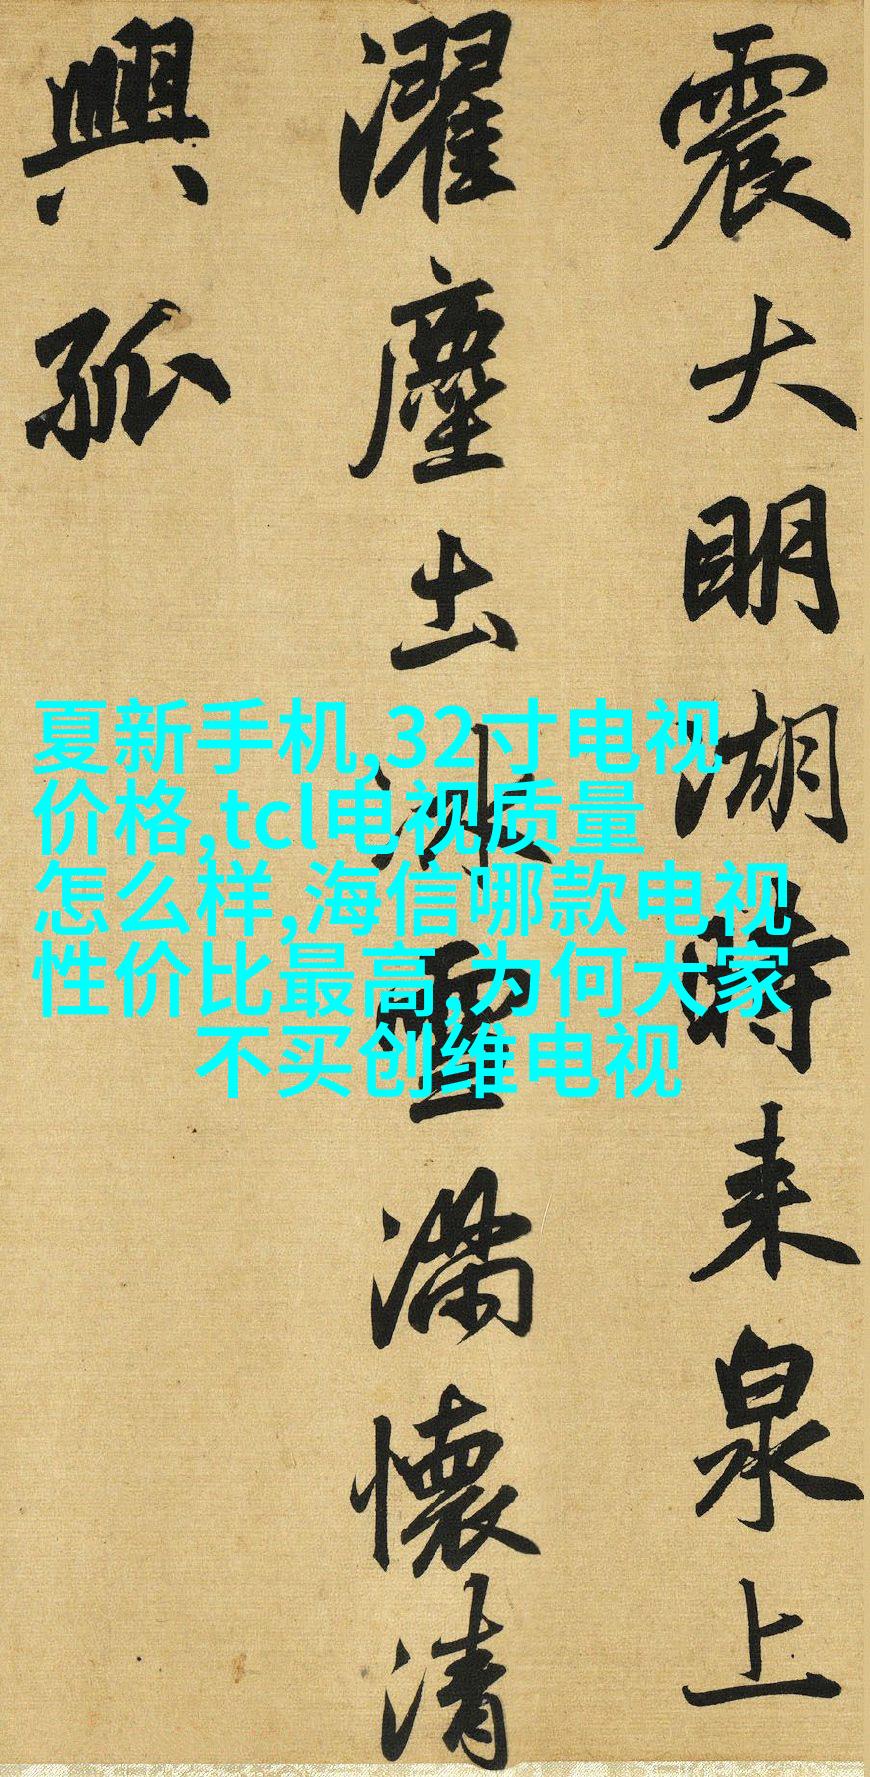 震大明湖時来泉上
濯塵土冰雪滿懷清
興孤
夏新手机,32寸电视
价格,tcl电视质量
怎么样,海信哪款电视
性价比最高,为何大家
不买创维电视